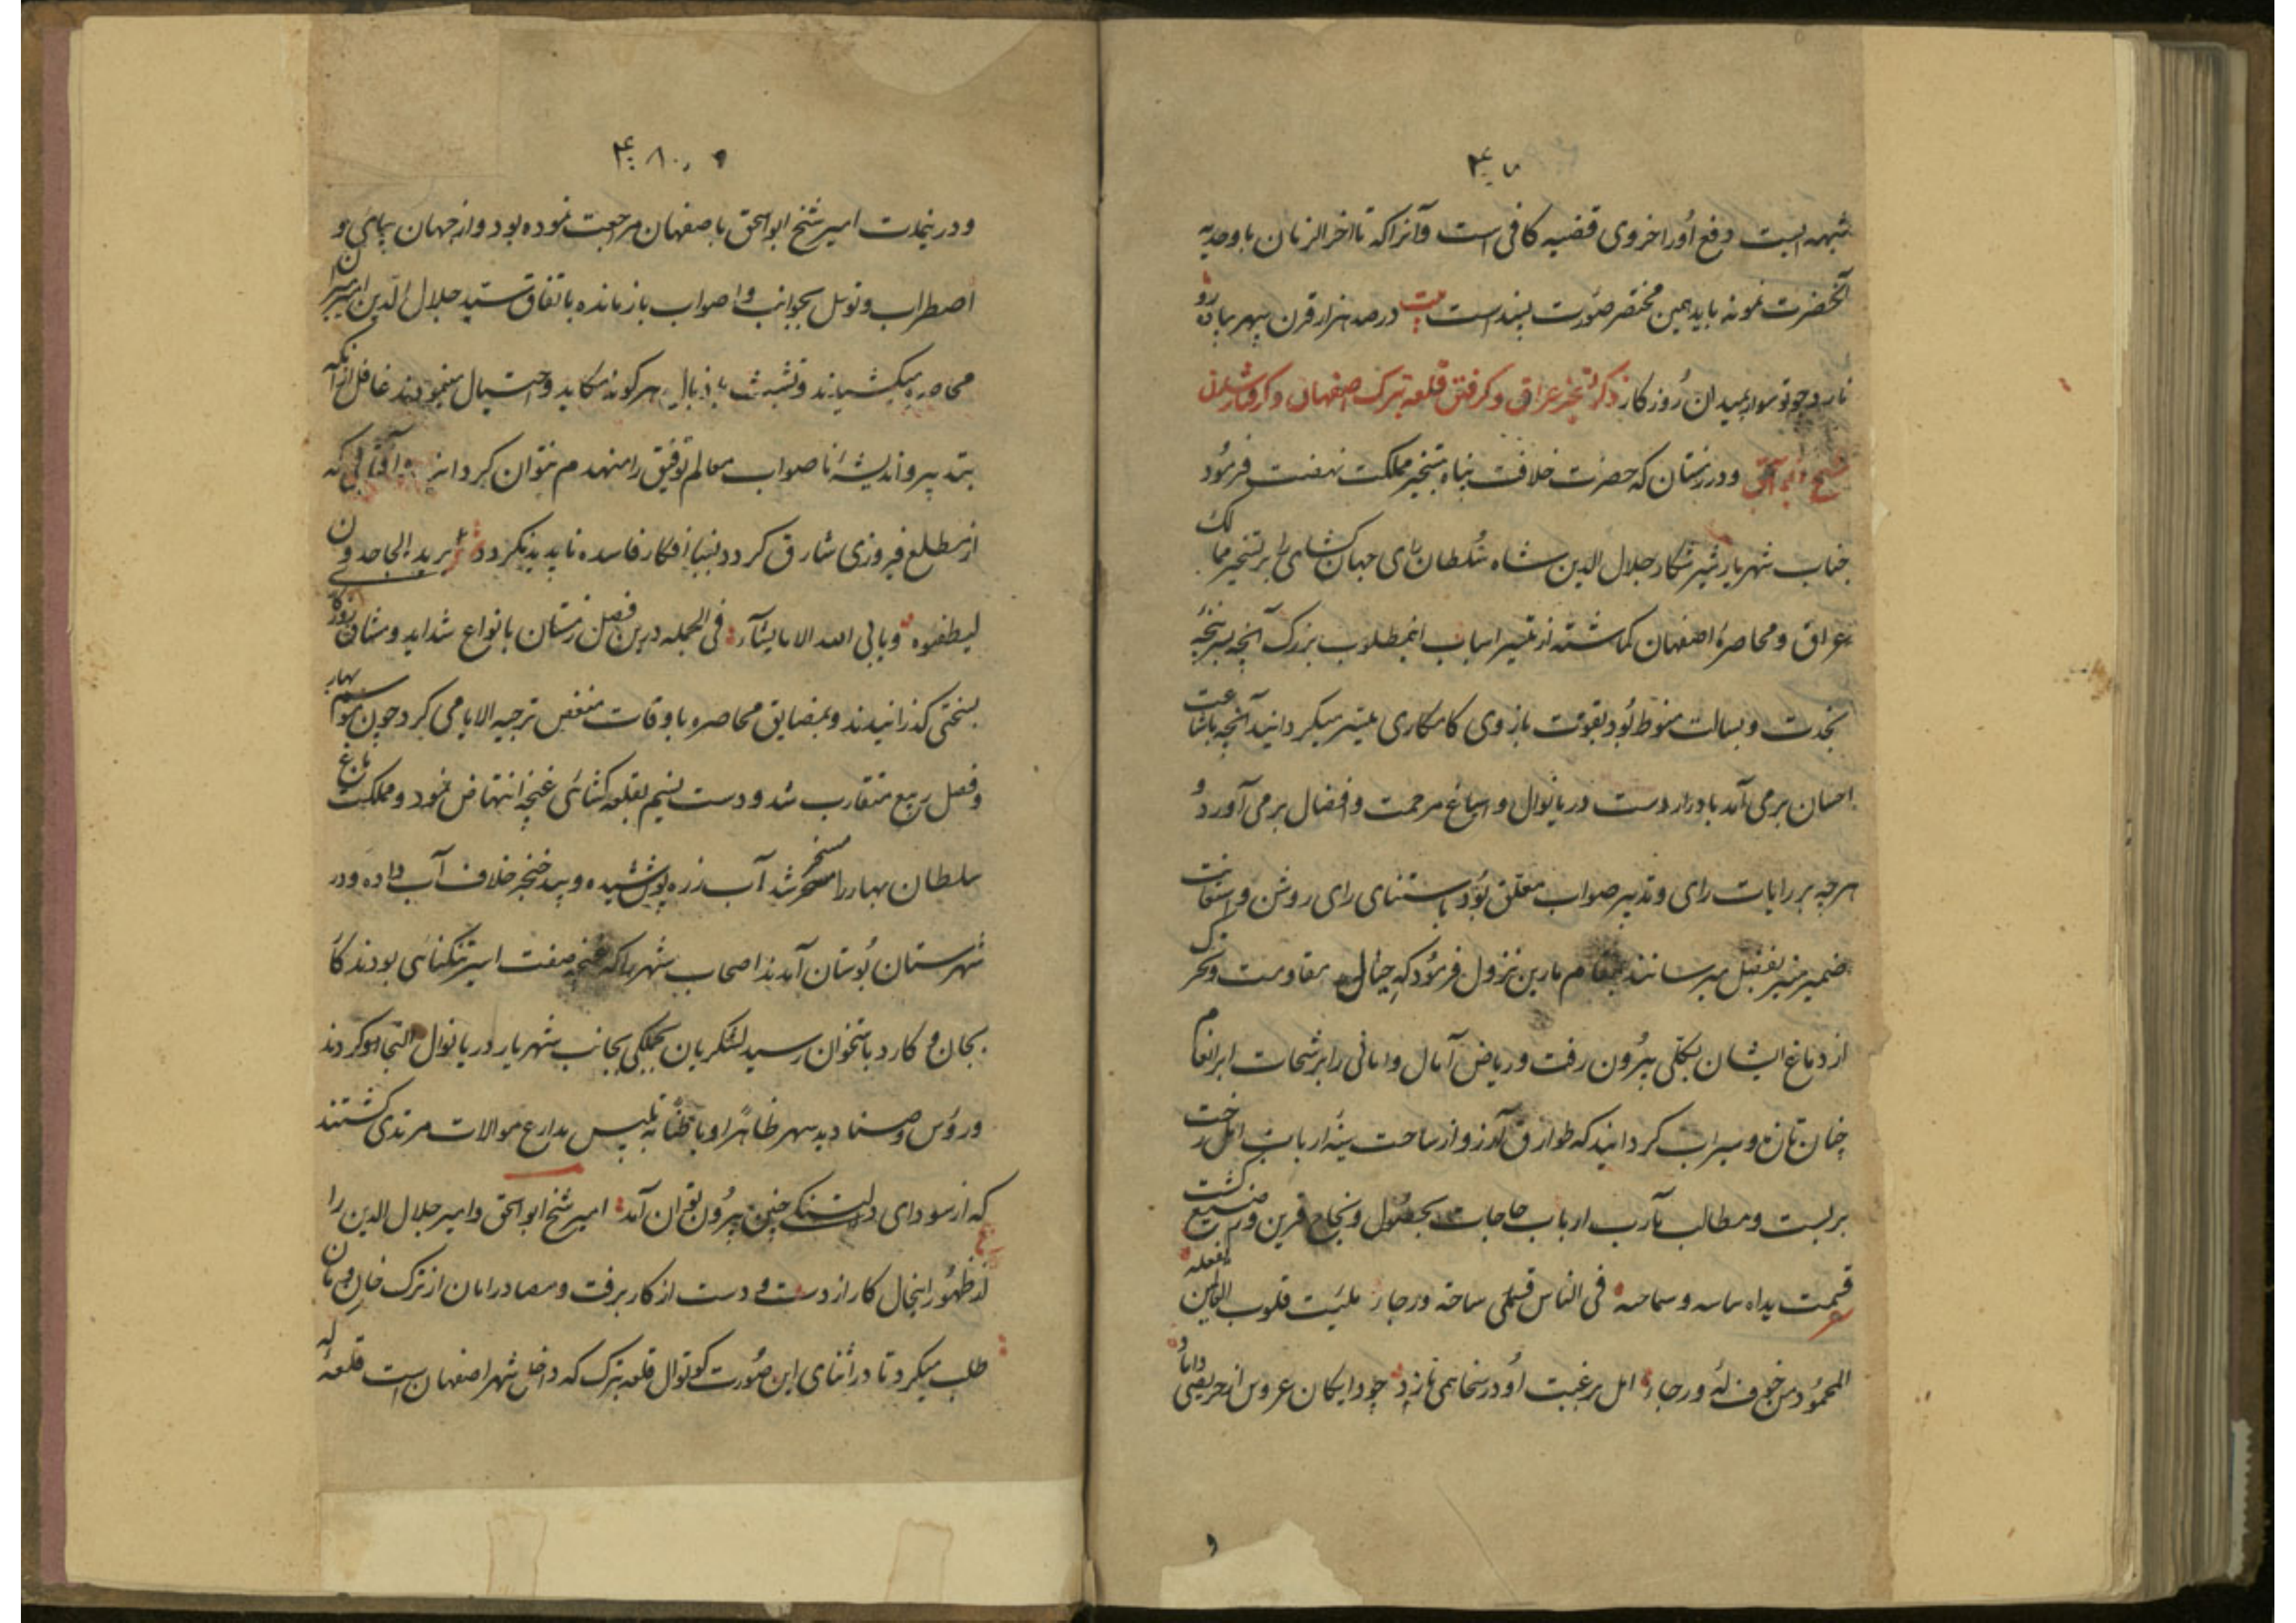 شبهه ایست دفع او را خروی قضیه کافی است و آنرا که تا آخر الزمان با وجدیه
آنحضرت نمونه باید همین مختصر صورت بسند است بیت در صد هزار قرن سپهر پیاده رو
نارد چو تو سوار بمیدان روزگار ذکر تسخیر عراق و گرفتن قلعه تبرک اصفهان و گرفتار شدن
شیخ ابو اسحق و در زمستان که حضرت خلافت پناه بتسخیر مملکت نهضت فرمود
جناب شهریار شیر شکار جلال الدین شاه سلطان رای جهان کشای را بر تسخیر ممالک
عراق و محاصرهٔ اصفهان کماشته از تیسیر اسباب انمطلوب بزرک آنچه بسر پنجهٔ
نجدت و بسالت منوط بود بقوت بازوی کامکاری میسر میکردانید آنچه باشاعت
احسان بر می آمد بادرار دست دریا نوال و اسباغ مرحمت و افضال بر می آورد و
هرچه بر رایات رای و تدبیر صواب معلق بود باستنای رای روشن و استعانت
ضمیر منیر بفیصل میرسانند بمقام مارین نزول فرمود که خیال مقاومت و تحرک
از دماغ ایشان بکلی بیرون رفت و ریاض آمال و امانی را برشحات ابر انعام
چنان تازه و سیراب کردانید که طوارق آرزو از ساحت سینه ارباب امل رخت
بر بست و مطالب مآرب ارباب حاجات بحصول و نجاح قرین و منیع کشت
قسمت یداه باسه و سماحه فی الناس قسمی ساخة ورجاء ملیت قلوب العالمین بفعله
المحمود من خوف له ورجاء امل برغبت او در سخا همی نازد چو دایکان عروس از حریفی داماد
و در ینمدت امیر شیخ ابو اسحق باصفهان مراجعت نموده بود و از جهان پیمائی و
اضطراب و توسل بجوانب و اصواب باز مانده باتفاق سید جلال الدین امیر میران
محاصره میکشیدند و تشبث باذیال هرکونه مکاید و احتیال مینمودند غافل از آنکه
بتدبیر و اندیشهٔ ناصواب معالم توفیق را منهدم نتوان کردانید و آفتابی که
از مطلع فیروزی شارق کردد بنیبا افکار فاسده ناپدید نکردد یرید الجاحدون
لیطفوه و یابی الله الا ما یشاء فی الجمله درین فصل زمستان بانواع شداید و مشاق روزکار
بسختی کذرانیدند و بمضایق محاصره با وقات منغص ترجیه الایامی کرد چون موسم بهار
و فصل ربیع متقارب شد و دست نسیم بقلعه کشائی غنچه انتهاض نمود و مملکت باغ
سلطان بهار را مسخر شد آب زره پوشیده و بید خنجر خلاف آب داده و در
شهرستان بوستان آمدند اصحاب شهر را که غنچه صفت اسیر تنکنائی بودند کار
بجان و کارد باستخوان رسید لشکریان بجملکی بجانب شهریار دریا نوال التجا کردند
و رؤس و صنادید سپهر ظاهرا و باطنا تلبیس بدارع موالات مرتدی کشتند
که از سودای دلتنکی چنین بیرون توان آمد امیر شیخ ابو اسحق و امیر جلال الدین را
از ظهور اینحال کار از دست و دست از کار برفت و مصادر امان از ترک خان و مان
طلب میکرد تا در اثنای این صورت کوتوال قلعه تبرک که داخل شهر اصفهان است قلعه که